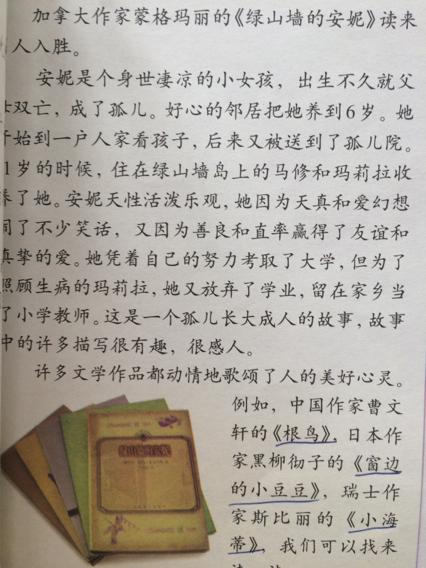 加拿大作家蒙格玛丽的《绿山墙的安妮》读来
人入胜。
安妮是个身世凄凉的小女孩，出生不久就父
双亡，成了孤儿。好心的邻居把她养到6岁。她
开始到一户人家看孩子，后来又被送到了孤儿院。
1岁的时候，住在绿山墙岛上的马修和玛莉拉收
养了她。安妮天性活泼乐观，她因为天真和爱幻想
闹了不少笑话，又因为善良和直率赢得了友谊和
真挚的爱。她凭着自己的努力考取了大学，但为了
照顾生病的玛莉拉，她又放弃了学业，留在家乡当
了小学教师。这是一个孤儿长大成人的故事，故事
中的许多描写很有趣，很感人。
许多文学作品都动情地歌颂了人的美好心灵。
例如，中国作家曹文
轩的《根鸟》，日本作
家黑柳彻子的《窗边
的小豆豆》，瑞士作
家斯比丽的《小海
蒂》，我们可以找来